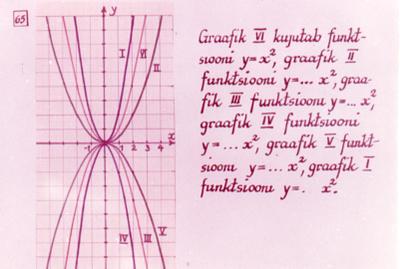 65
y
I VI II
x
-1 1 2 3 4
IV III V
Graafik VI kujutab funkt-
siooni y=x², graafik II
funktsiooni y=... x², graa-
fik III funktsiooni y=... x²,
graafik IV funktsiooni
y=... x², graafik V funkt-
siooni y=... x², graafik I
funktsiooni y=. x².